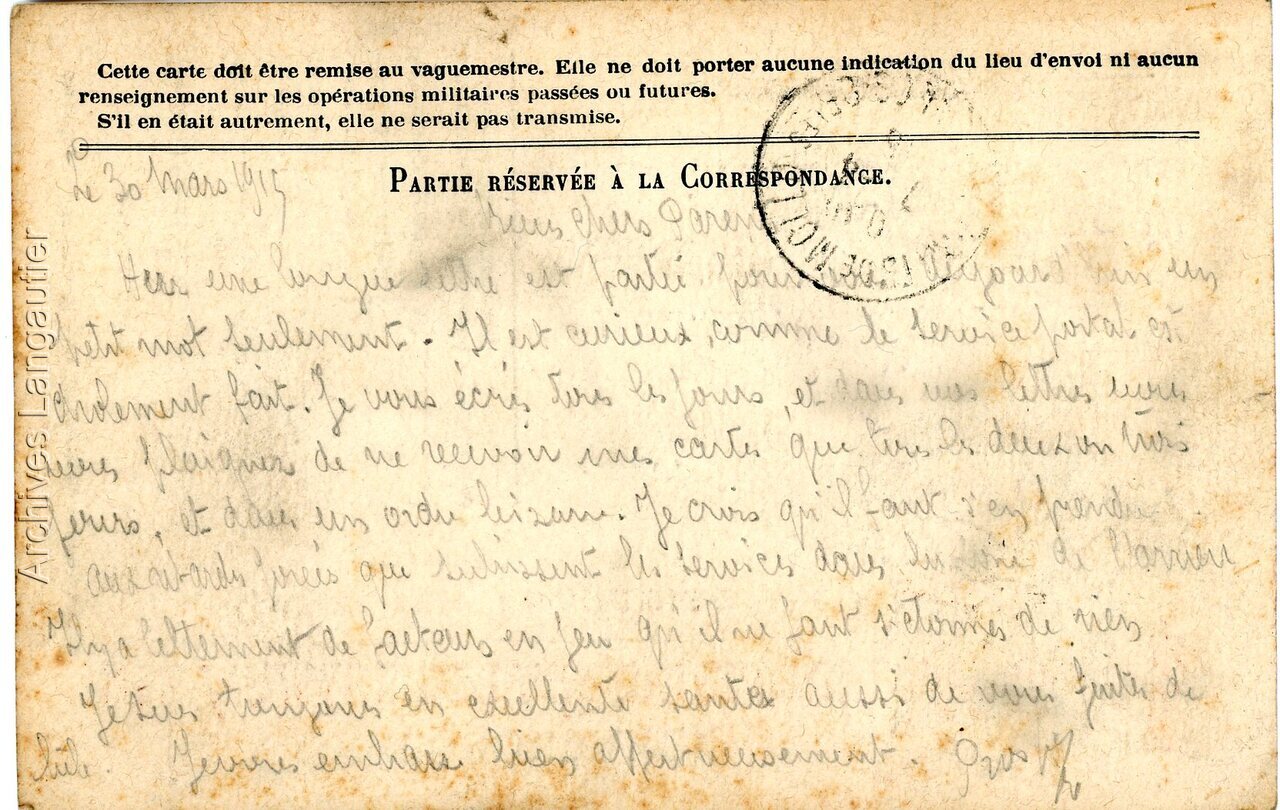 Cette carte doit être remise au vaguemestre. Elle ne doit porter aucune indication du lieu d'envoi ni aucun
renseignement sur les opérations militaires passées ou futures.
S'il en était autrement, elle ne serait pas transmise.
Le 30 Mars 1915
PARTIE RÉSERVÉE À LA CORRESPONDANCE.
chers Parents
Hier une longue lettre est partie pour vous. Aujourd'hui un
petit mot seulement. Il est curieux, comme le service postal est
drolement fait. Je vous écris tous les jours, et dans vos lettres vous
vous plaignez de ne recevoir mes cartes que tous les deux ou trois
jours, et dans un ordre bizarre. Je crois qu'il faut s'en prendre
aux retards que subissent les services dans de l'arrière
Il y a tellement de facteurs en jeu qu'il ne faut s'étonner de rien
Je suis toujours en excellente santé aussi de vous faites de
bile. Je vous embrasse bien affectueusement.
Archives Langautier